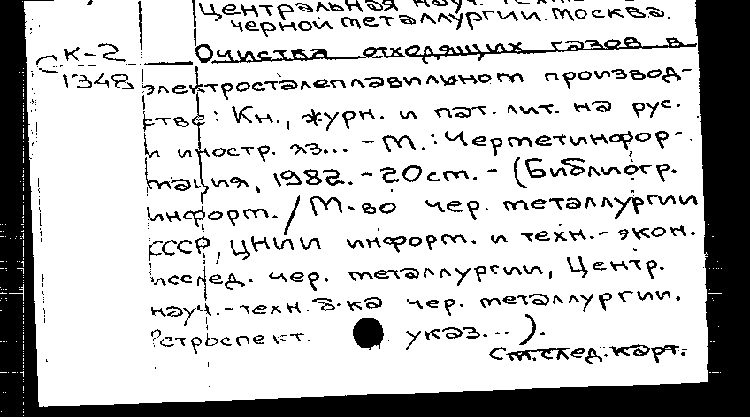 Центральная науч.
черной металлургии. Москва.
С К-2
1348
Очистка отходящих газов в
электросталеплавильном производ-
стве: Кн., журн. и пат. лит. на рус.
и иностр. яз... - М.: Черметинфор-
мация, 1982. - 20 ст. - (Библиогр.
информ. / М-во чер. металлургии
СССР, ЦНИИ информ. и техн.-экон.
исслед. чер. металлургии, Центр.
науч.-техн. б-ка чер. металлургии.
Ретроспект. указ...).
См. след. карт.